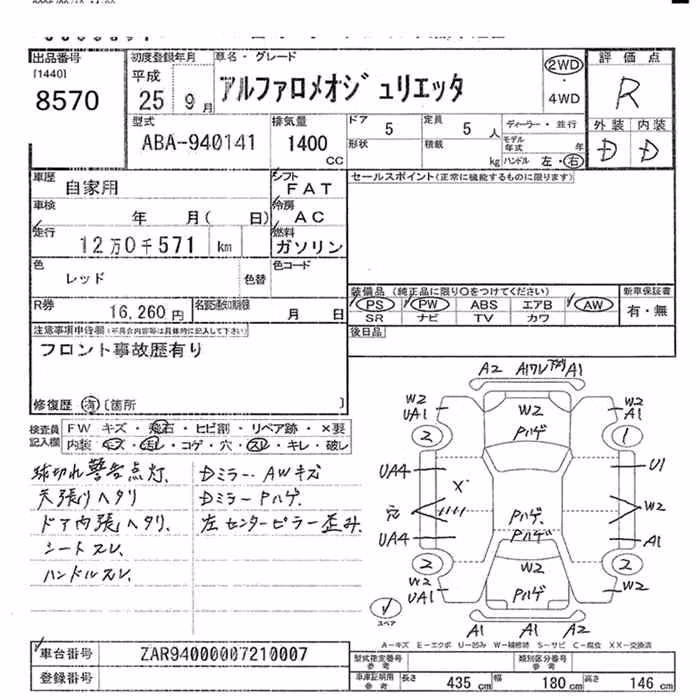 出品番号
[1440]
8570
初度登録年月
平成
25 9月
車名・グレード
アルファロメオジュリエッタ
2WD
・
4WD
評価点
R
外装 内装
D D
型式
ABA-940141
排気量
1400
CC
ドア 5
形状
定員 5 人
積載 kg
ディーラー・並行
モデル年式 年
ハンドル 左・右
車歴
自家用
シフト
FAT
車検
年 月( 日)
冷房
AC
走行
12万0千571 km
燃料
ガソリン
色
レッド
色替
色コード
R券
16,260円
名義変更期限
月 日
セールスポイント(正常に機能するものに限ります)
装備品(純正品に限り○をつけてください)
PS PW ABS エアB AW
SR ナビ TV カワ
新車保証書
有・無
後日品
注意事項申告欄(不具合内容等は具体的に記入して下さい)
フロント事故歴有り
修復歴 有 [箇所 ]
検査員記入欄
FW キズ・飛石・ヒビ割・リペア跡・×要
内装 キズ・汚レ・コゲ・穴・スレ・キレ・破レ
球切れ警告点灯.
天張りヘタリ
ドア内張ヘタリ、
シートスレ、
ハンドルスレ、
Dミラー.AWキズ
Dミラー Pハゲ.
左センターピラー歪み.
A2 A1 A1
W2
UA1
W2
Pハゲ
W2
A1
2
1
UA4
U1
X
W2
Pハゲ
Pハゲ
UA4
A1
2
2
W2
UA1
W2
Pハゲ
W2
スペア
A1 A1 A2
A－キズ E－エクボ U－凹み W－補修跡 S－サビ C－腐食 XX－交換済
車台番号
ZAR94000007210007
登録番号
型式指定番号
参考
類別区分番号
参考
車庫証明用
参考
長さ 435 cm 幅 180 cm 高さ 146 cm